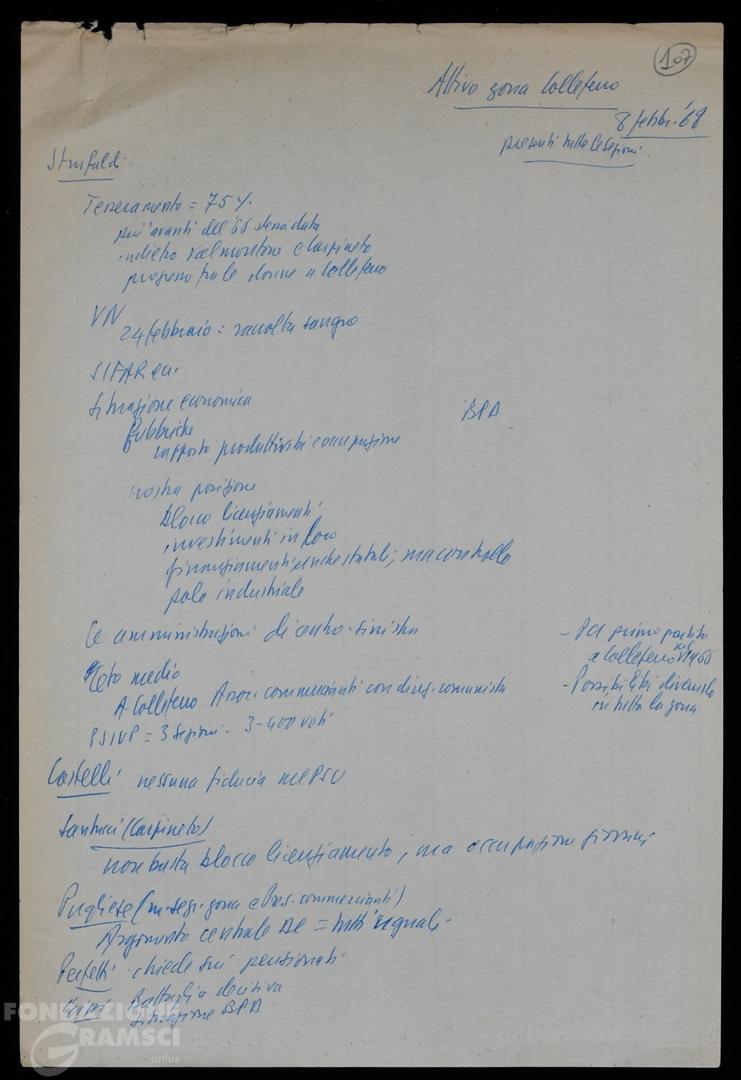 107
Attivo zona Colleferro
8 febbr. '68
presenti tutte le sezioni
Strufaldi
Tesseramento = 75%
più avanti del '66 stessa data
indietro Valmontone e Carpineto
progresso tra le donne a Colleferro
VN
24 febbraio = raccolta sangue
SIFAR ecc.
Situazione economica
BPD
fabbriche
rapporto produttività occupazione
nostra posizione
blocco licenziamenti
investimenti in loco
finanziamenti anche statali; ma controllo
polo industriale
Le amministrazioni di centro-sinistra
- PCI primo partito
a Colleferro nel 1966
Ceto medio
- Possibilità diverse
in tutta la zona
A Colleferro Assoc. commercianti con direz. comunista
PSIUP = 3 sezioni - 3-400 voti
Castelli nessuna fiducia nel PSU
Santucci (Carpineto)
non basta blocco licenziamento, ma occupazione giovani
Pugliese (segr. zona e Pres. commercianti)
Argomento centrale DC = tutti uguali -
Perfetti chiede sui pensionati
Battaglia decisiva
situazione BPD
FONDAZIONE
GRAMSCI
onlus